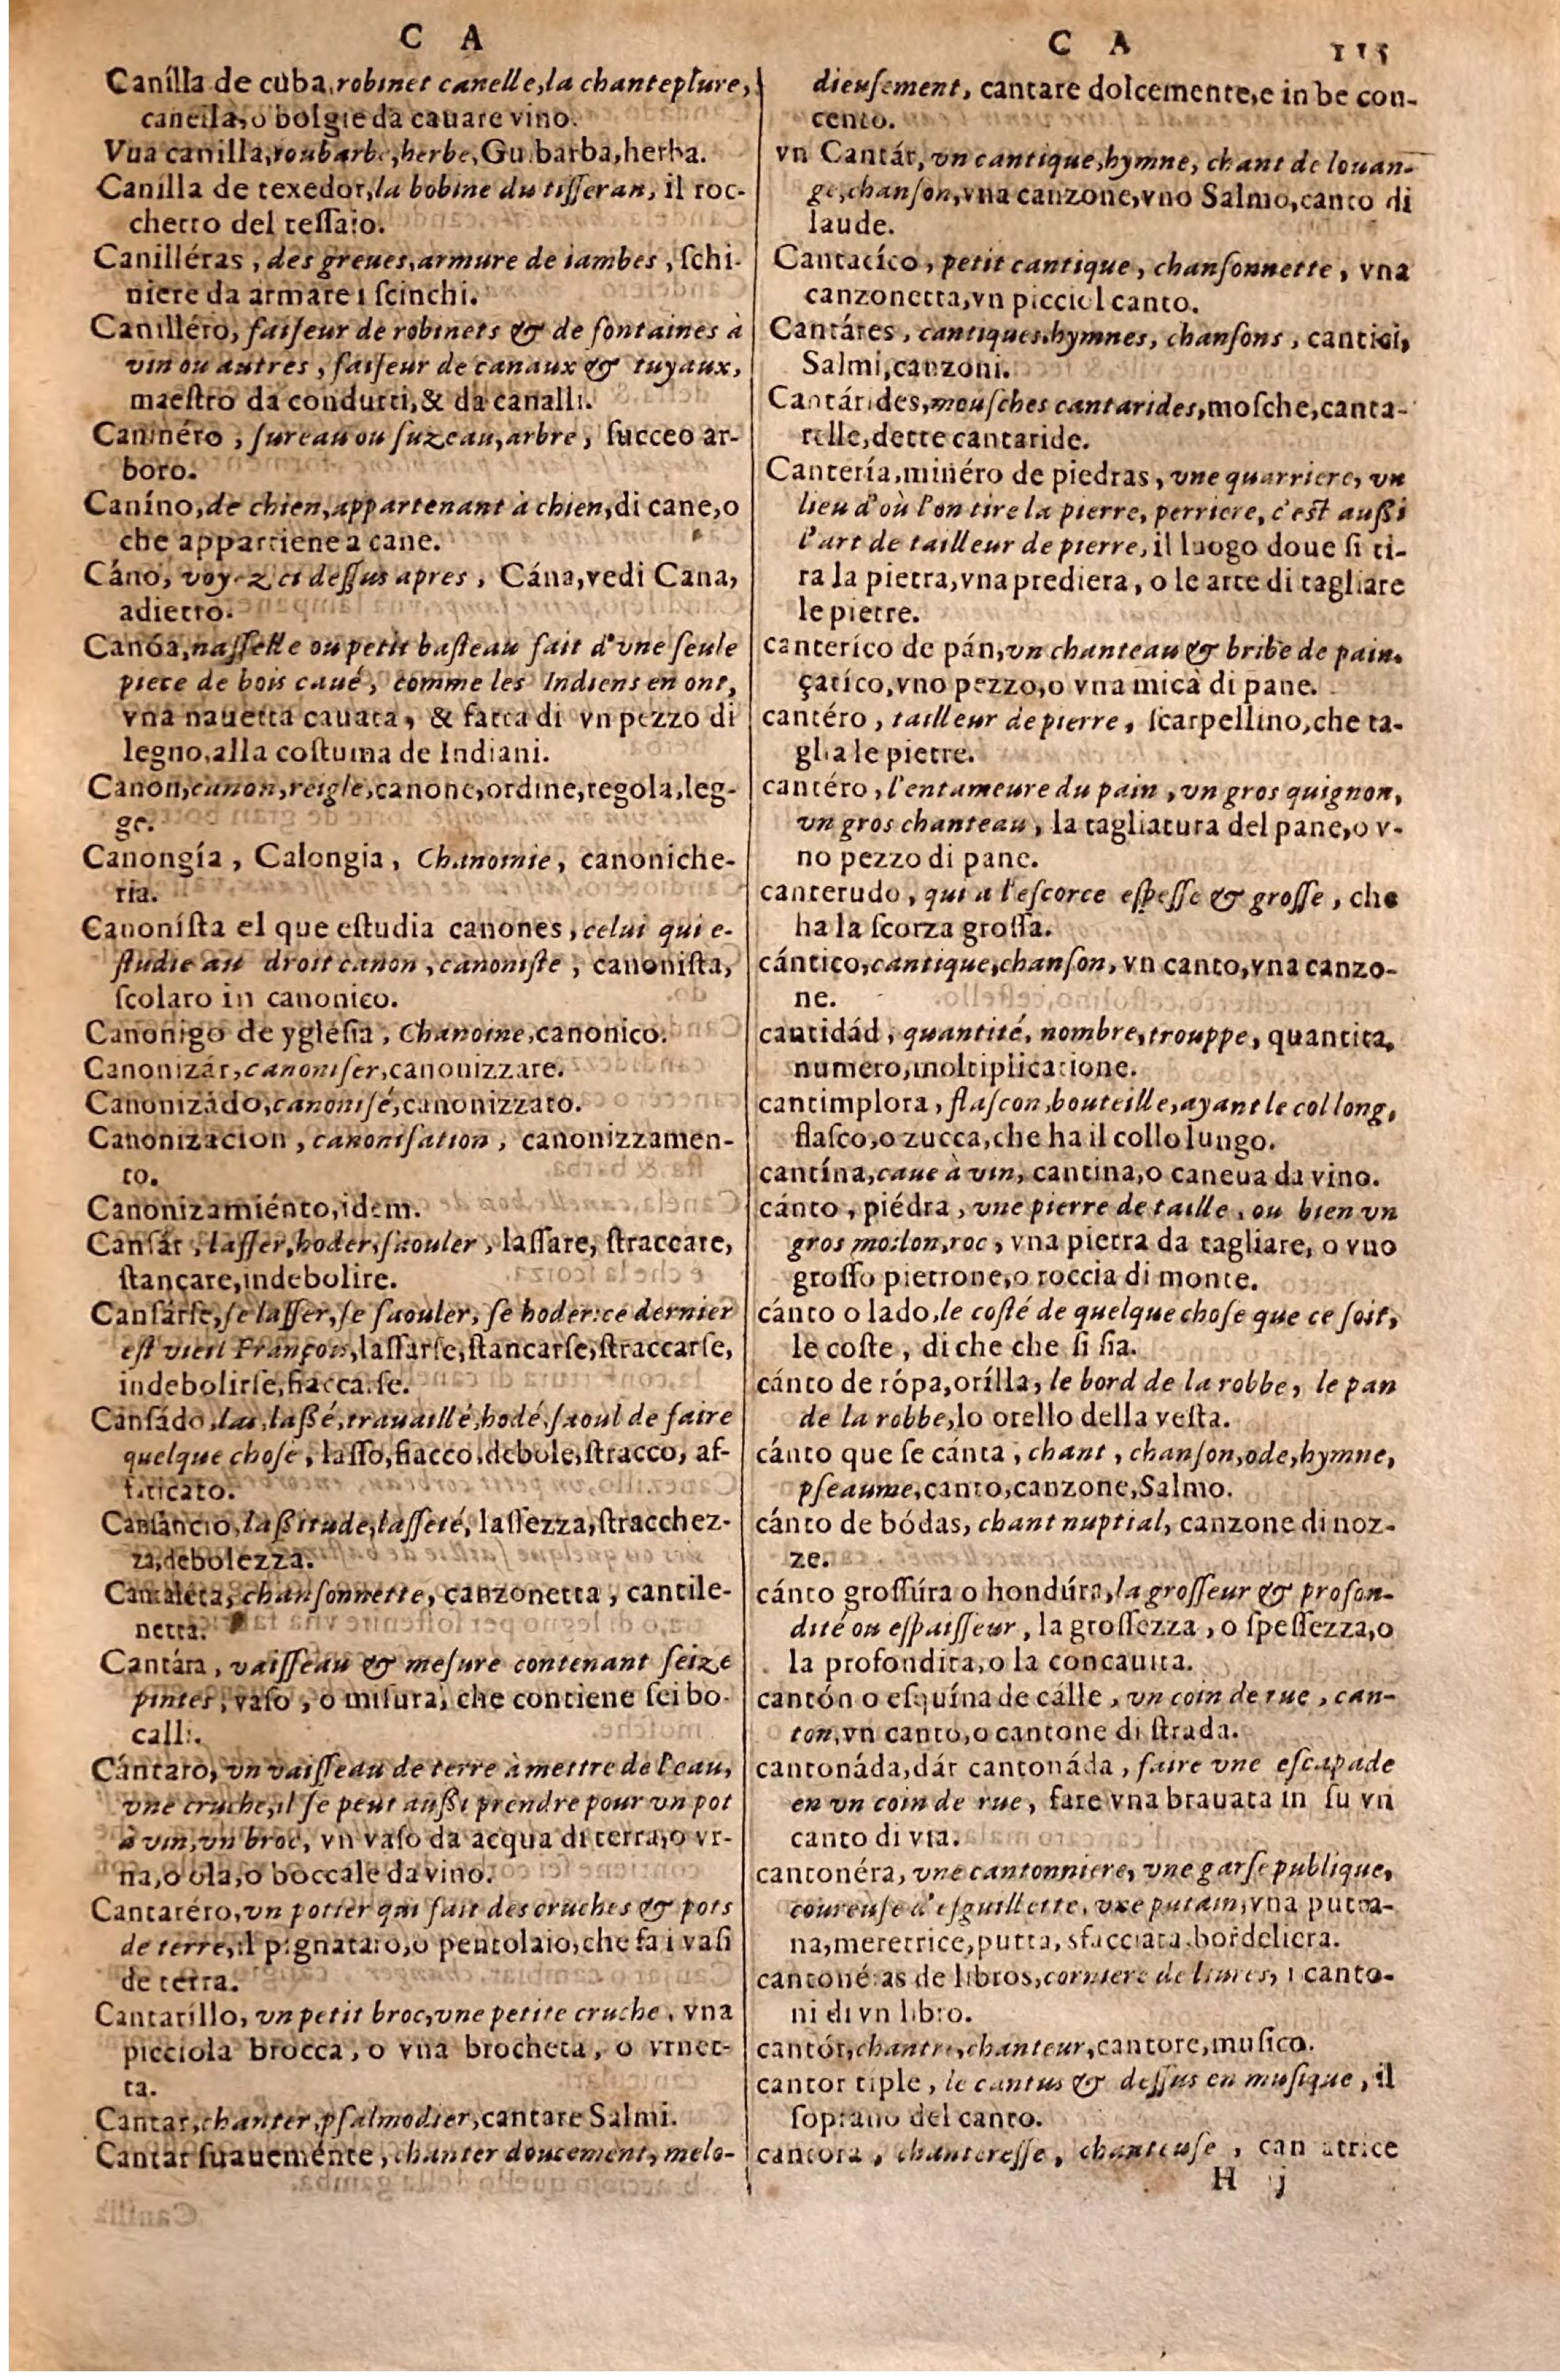 C A
Canílla de cuba, robinet canelle, la chantepleure,
canella, o bolgie da cauare vino.
Vua canilla, roubarbe, herbe, Gu.barba, herba.
Canilla de texedor, la bobine du tisseran, il roc-
chetto del teſſaio.
Canilléras, des greues, armure de iambes, ſchi-
niere da armare i ſcinchi.
Canilléro, faiſeur de robinets & de fontaines à
vin ou autres, faiſeur de canaux & tuyaux,
maeſtro da condutti, & da canalli.
Caninéro, ſureau ou ſuzeau, arbre, ſucceo ar-
boro.
Caníno, de chien, appartenant à chien, di cane, o
che appartiene a cane.
Cáno, voyez ci deſſus apres, Cána, vedi Cana,
adietro.
Canóa, naſſelle ou petit baſteau fait d'vne ſeule
piece de bois caué, comme les Indiens en ont,
vna nauetta cauata, & fatta di vn pezzo di
legno, alla coſtuma de Indiani.
Canon, canon, reigle, canone, ordine, regola, leg-
ge.
Canongía, Calongia, Chanoinie, canoniche-
ria.
Canoníſta el que eſtudia canones, celui qui e-
ſtudie au droit canon, canoniſte, canoniſta,
ſcolaro in canonico.
Canonigo de ygleſia, Chanoine, canonico.
Canonizár, canoniſer, canonizzare.
Canonizádo, canoniſé, canonizzato.
Canonizacion, canoniſation, canonizzamen-
to.
Canonizamiénto, idem.
Canſár, laſſer, hoder, ſaouler, laſſare, ſtraccare,
ſtançare, indebolire.
Canſárſe, ſe laſſer, ſe ſaouler, ſe hoder: ce dernier
eſt vieil François, laſſarſe, ſtancarſe, ſtraccarſe,
indebolirſe, fiaccarſe.
Canſádo, las, laßé, trauaillé, hodé, ſaoul de faire
quelque choſe, laſſo, fiacco, debole, ſtracco, af-
faticato.
Canſáncio, laßitude, laſſeté, laſſezza, ſtracchez-
za, debolezza.
Cantaléta, chanſonnette, canzonetta, cantile-
netta.
Cantára, vaiſſeau & meſure contenant ſeize
pintes, vaſo, o miſura, che contiene ſei bo-
calli.
Cántaro, vn vaiſſeau de terre à mettre de l'eau,
vne cruche, il ſe peut außi prendre pour vn pot
à vin, vn broc, vn vaſo da acqua di terra, o vr-
na, o ola, o boccale da vino.
Cantaréro, vn potier qui fait des cruches & pots
de terre, il pignataro, o pentolaio, che fa i vaſi
de terra.
Cantarillo, vn petit broc, vne petite cruche, vna
picciola brocca, o vna brocheta, o vrnet-
ta.
Cantar, chanter, pſalmodier, cantare Salmi.
Cantar ſuaueménte, chanter doucement, melo-
C A 115
dieuſement, cantare dolcemente, e in be con-
cento.
vn Cantár, vn cantique, hymne, chant de louan-
ge, chanſon, vna canzone, vno Salmo, canto di
laude.
Cantacíco, petit cantique, chanſonnette, vna
canzonetta, vn picciol canto.
Cantáres, cantiques, hymnes, chanſons, cantici,
Salmi, canzoni.
Cantárides, mouſches cantarides, moſche, canta-
relle, dette cantaride.
Cantería, minéro de piedras, vne quarriere, vn
lieu d'où l'on tire la pierre, perriere, c'eſt außi
l'art de tailleur de pierre, il luogo doue ſi ti-
ra la pietra, vna prediera, o le arte di tagliare
le pietre.
canteríco de pán, vn chanteau & bribe de pain,
çatíco, vno pezzo, o vna micà di pane.
cantéro, tailleur de pierre, ſcarpellino, che ta-
glia le pietre.
cantéro, l'entameure du pain, vn gros quignon,
vn gros chanteau, la tagliatura del pane, o v-
no pezzo di pane.
canterudo, qui a l'eſcorce eſpeſſe & groſſe, che
ha la ſcorza groſſa.
cántico, cantique, chanſon, vn canto, vna canzo-
ne.
cantidád, quantité, nombre, trouppe, quantita,
numero, moltiplicatione.
cantimplora, flaſcon, bouteille, ayant le col long,
flaſco, o zucca, che ha il collo lungo.
cantína, caue à vin, cantina, o caneua da vino.
cánto, piédra, vne pierre de taille, ou bien vn
gros moilon, roc, vna pietra da tagliare, o vno
groſſo pietrone, o roccia di monte.
cánto o lado, le coſté de quelque choſe que ce ſoit,
le coſte, di che che ſi ſia.
cánto de rópa, orílla, le bord de la robbe, le pan
de la robbe, lo orello della veſta.
cánto que ſe cánta, chant, chanſon, ode, hymne,
pſeaume, canto, canzone, Salmo.
cánto de bódas, chant nuptial, canzone di noz-
ze.
cánto groſſúra o hondúra, la groſſeur & profon-
dité ou eſpaiſſeur, la groſſezza, o ſpeſſezza, o
la profondita, o la concauita.
cantón o eſquína de cálle, vn coin de rue, can-
ton, vn canto, o cantone di ſtrada.
cantonáda, dár cantonáda, faire vne eſcapade
en vn coin de rue, fare vna brauata in ſu vn
canto di via.
cantonéra, vne cantonniere, vne garſe publique,
coureuſe d'eſguillette, vne putain, vna putta-
na, meretrice, putta, sfacciata, bordeliera.
cantonéras de libros, corniere de liures, i canto-
ni di vn libro.
cantór, chantre, chanteur, cantore, muſico.
cantor tiple, le cantus & deſſus en muſique, il
ſoprano del canto.
cantora, chantereſſe, chanteuſe, cantatrice
H j